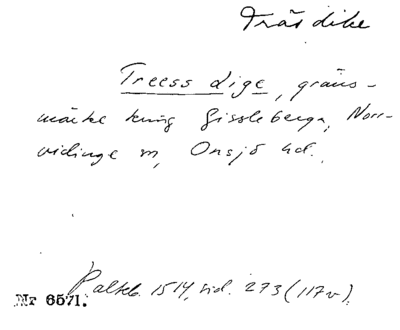 Träs dike
Treess Dige, gräns-
märke kring Gissleberga, Norr-
vidinge sn, Onsjö hd.
Palteb. 1514, sid. 273 (117v)
Nr 6571.